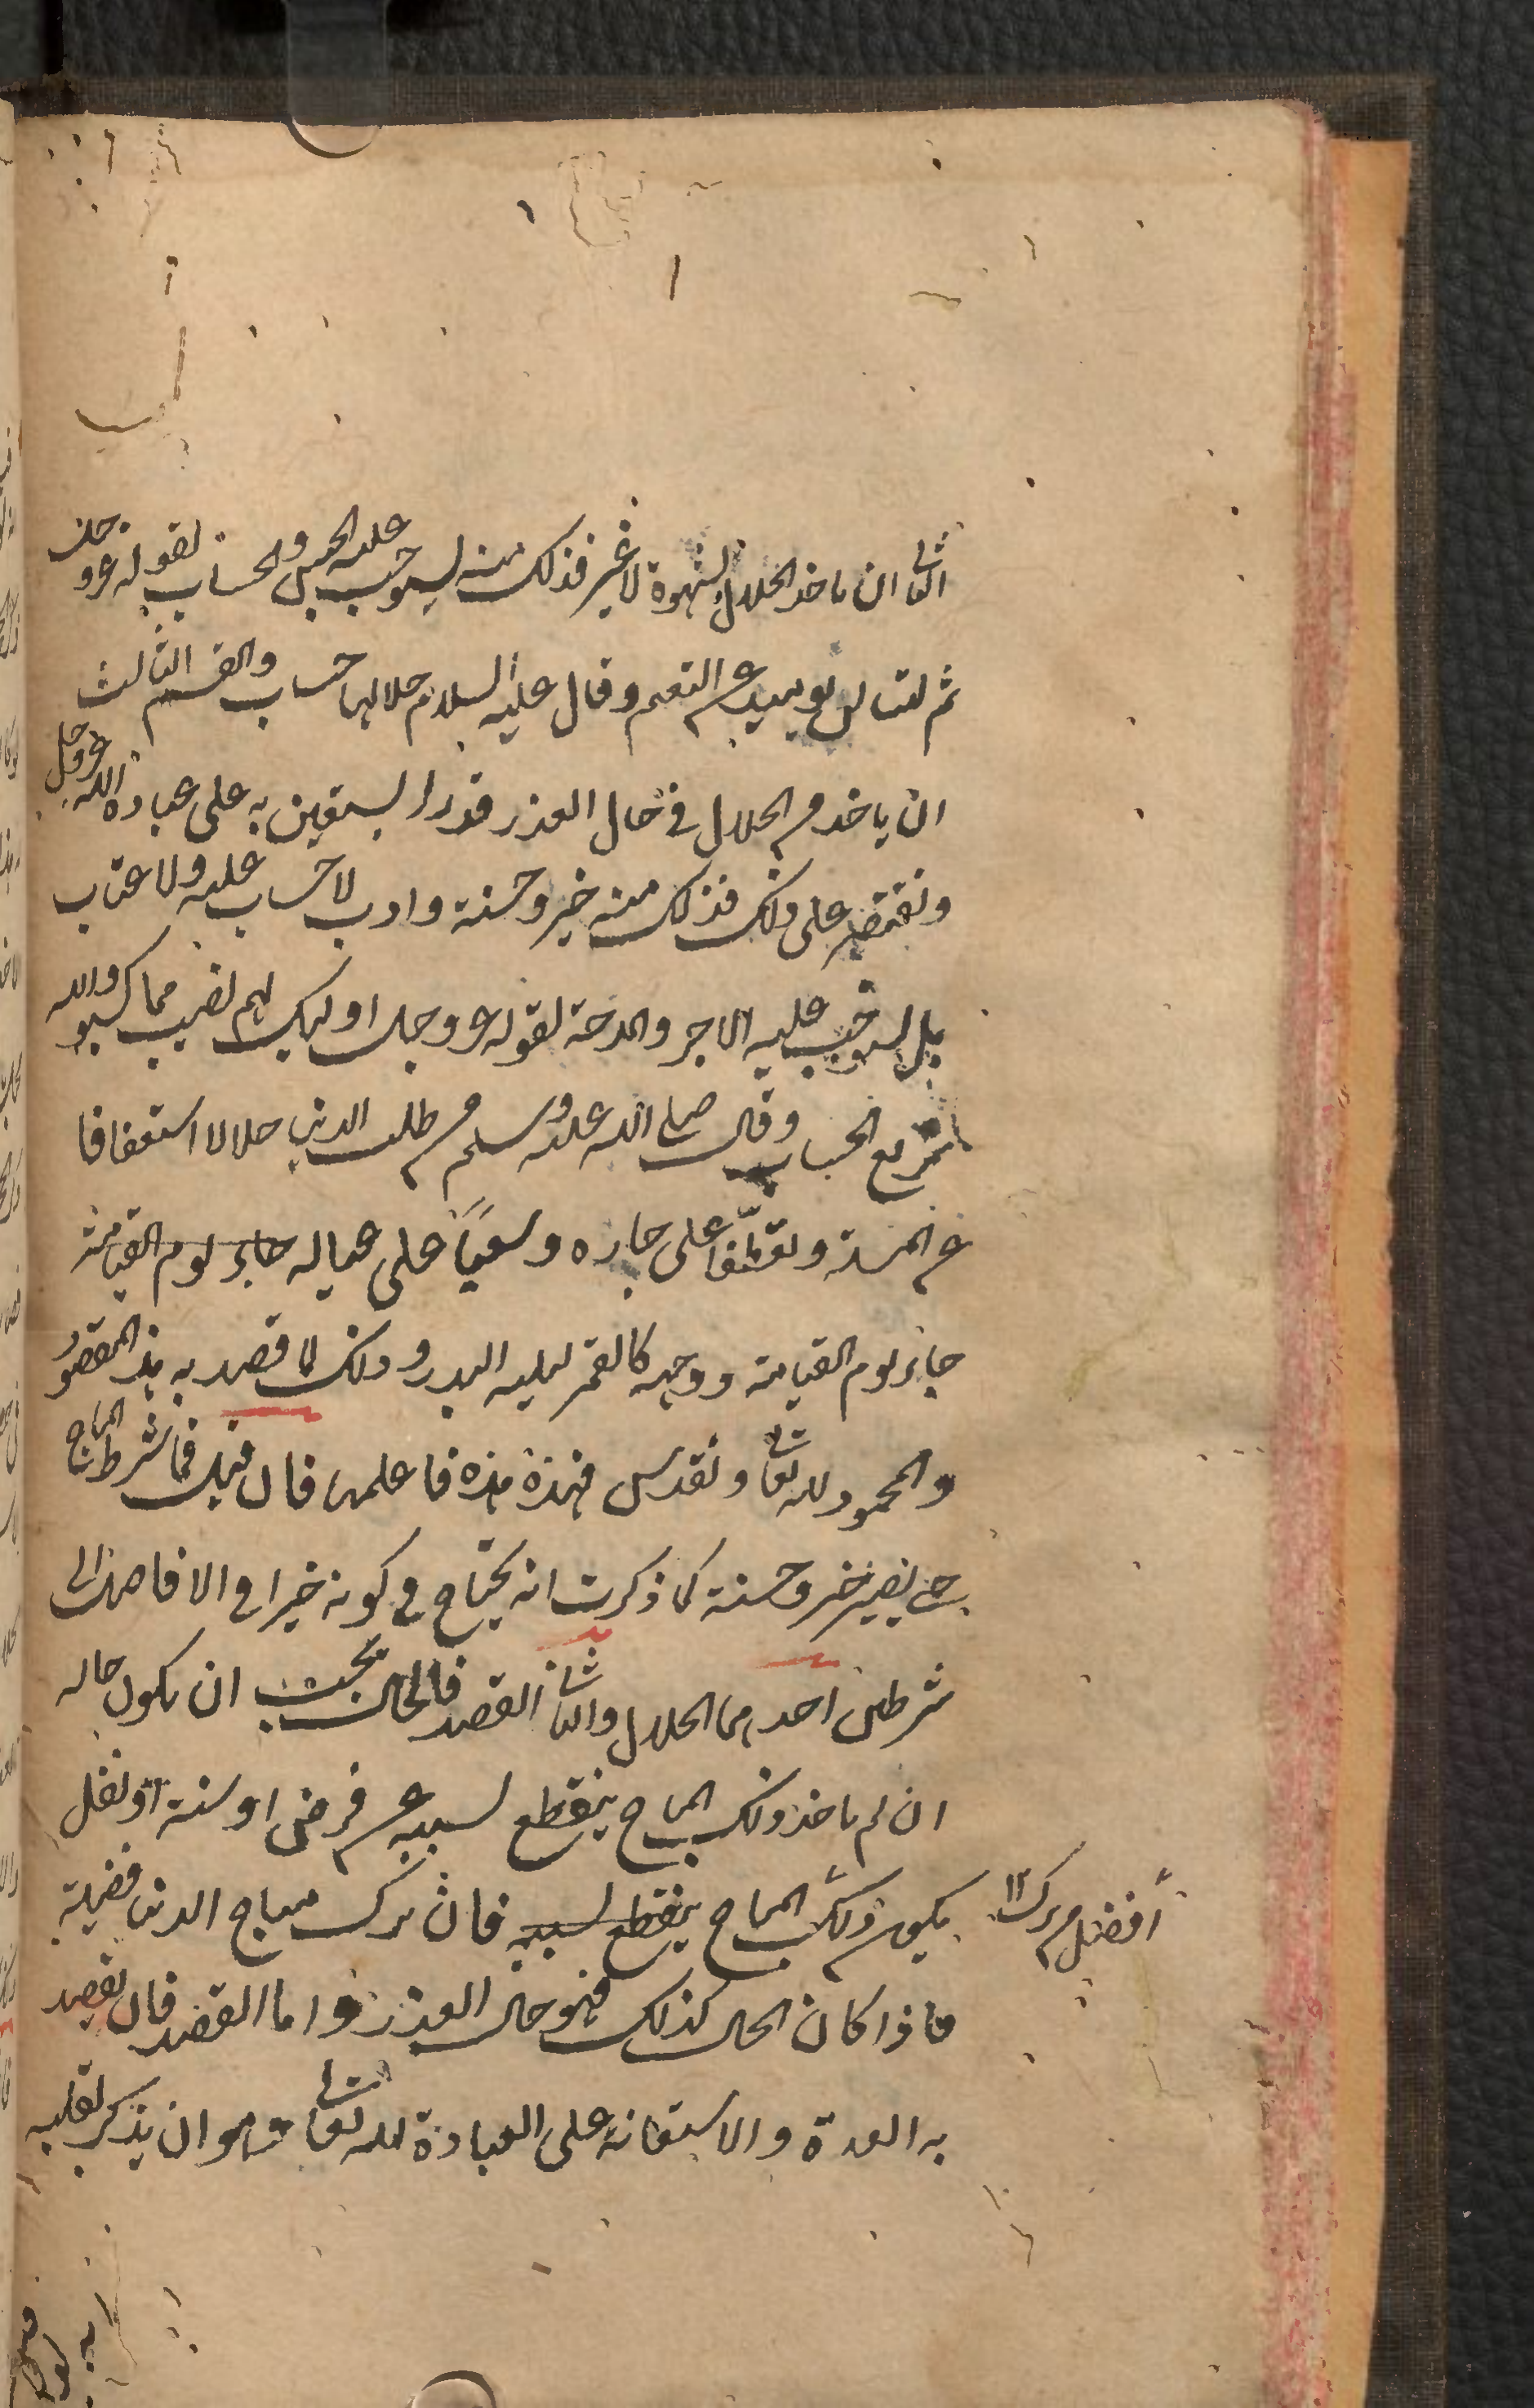 الثانى ان ياخذ الحلال لشهوة لا غير فذلك منه يستوجب عليه الحبس والحساب لقوله عز وجل
ثم لتسالن يومئذ عن النعيم وقال عليه السلام حلالها حساب والقسم الثالث
ان ياخذ من الحلال في حال العذر قدرا يستعين به على عبادة الله عز وجل
ويقتصر على ذلك فذلك منه خير وحسنة وادب لا حساب عليه ولا عتاب
بل يستوجب عليه الاجر والمدحة لقوله عز وجل اوليك لهم نصيب مما كسبوا والله
سريع الحساب وقال صلى الله عليه وسلم من طلب الدنيا حلالا استعفافا
عن المسئلة وتعطفا على جاره وسعيًا على عياله جاء يوم القيامة
جاء يوم القيامة ووجهه كالقمر ليلة البدر وذلك لما قصد به هذا المقصود
والمحمود لله تعالى وتقدس فهذه هذه فاعلمها فان قيل فما شرط المباح
حتى يصير خير وحسنة كما ذكرت انه يحتاج في كونه خيرا في الافاضل الى
شرطين احدهما الحال والثانى القصد فالحال يجب ان يكون حاله
ان لم ياخذ ذلك المباح ينقطع لسببه عن فرض او سنة او نفل
يكون ذلك المباح ينقطع لسببه فان ترك مباح الدنيا فضيلة
أفضل من تركه
فاذا كان الحال كذلك فهو حال العذر واما القصد فان يقصد
به العدة والاستعانة على العبادة لله تعالى وهو ان يذكر بقلبه